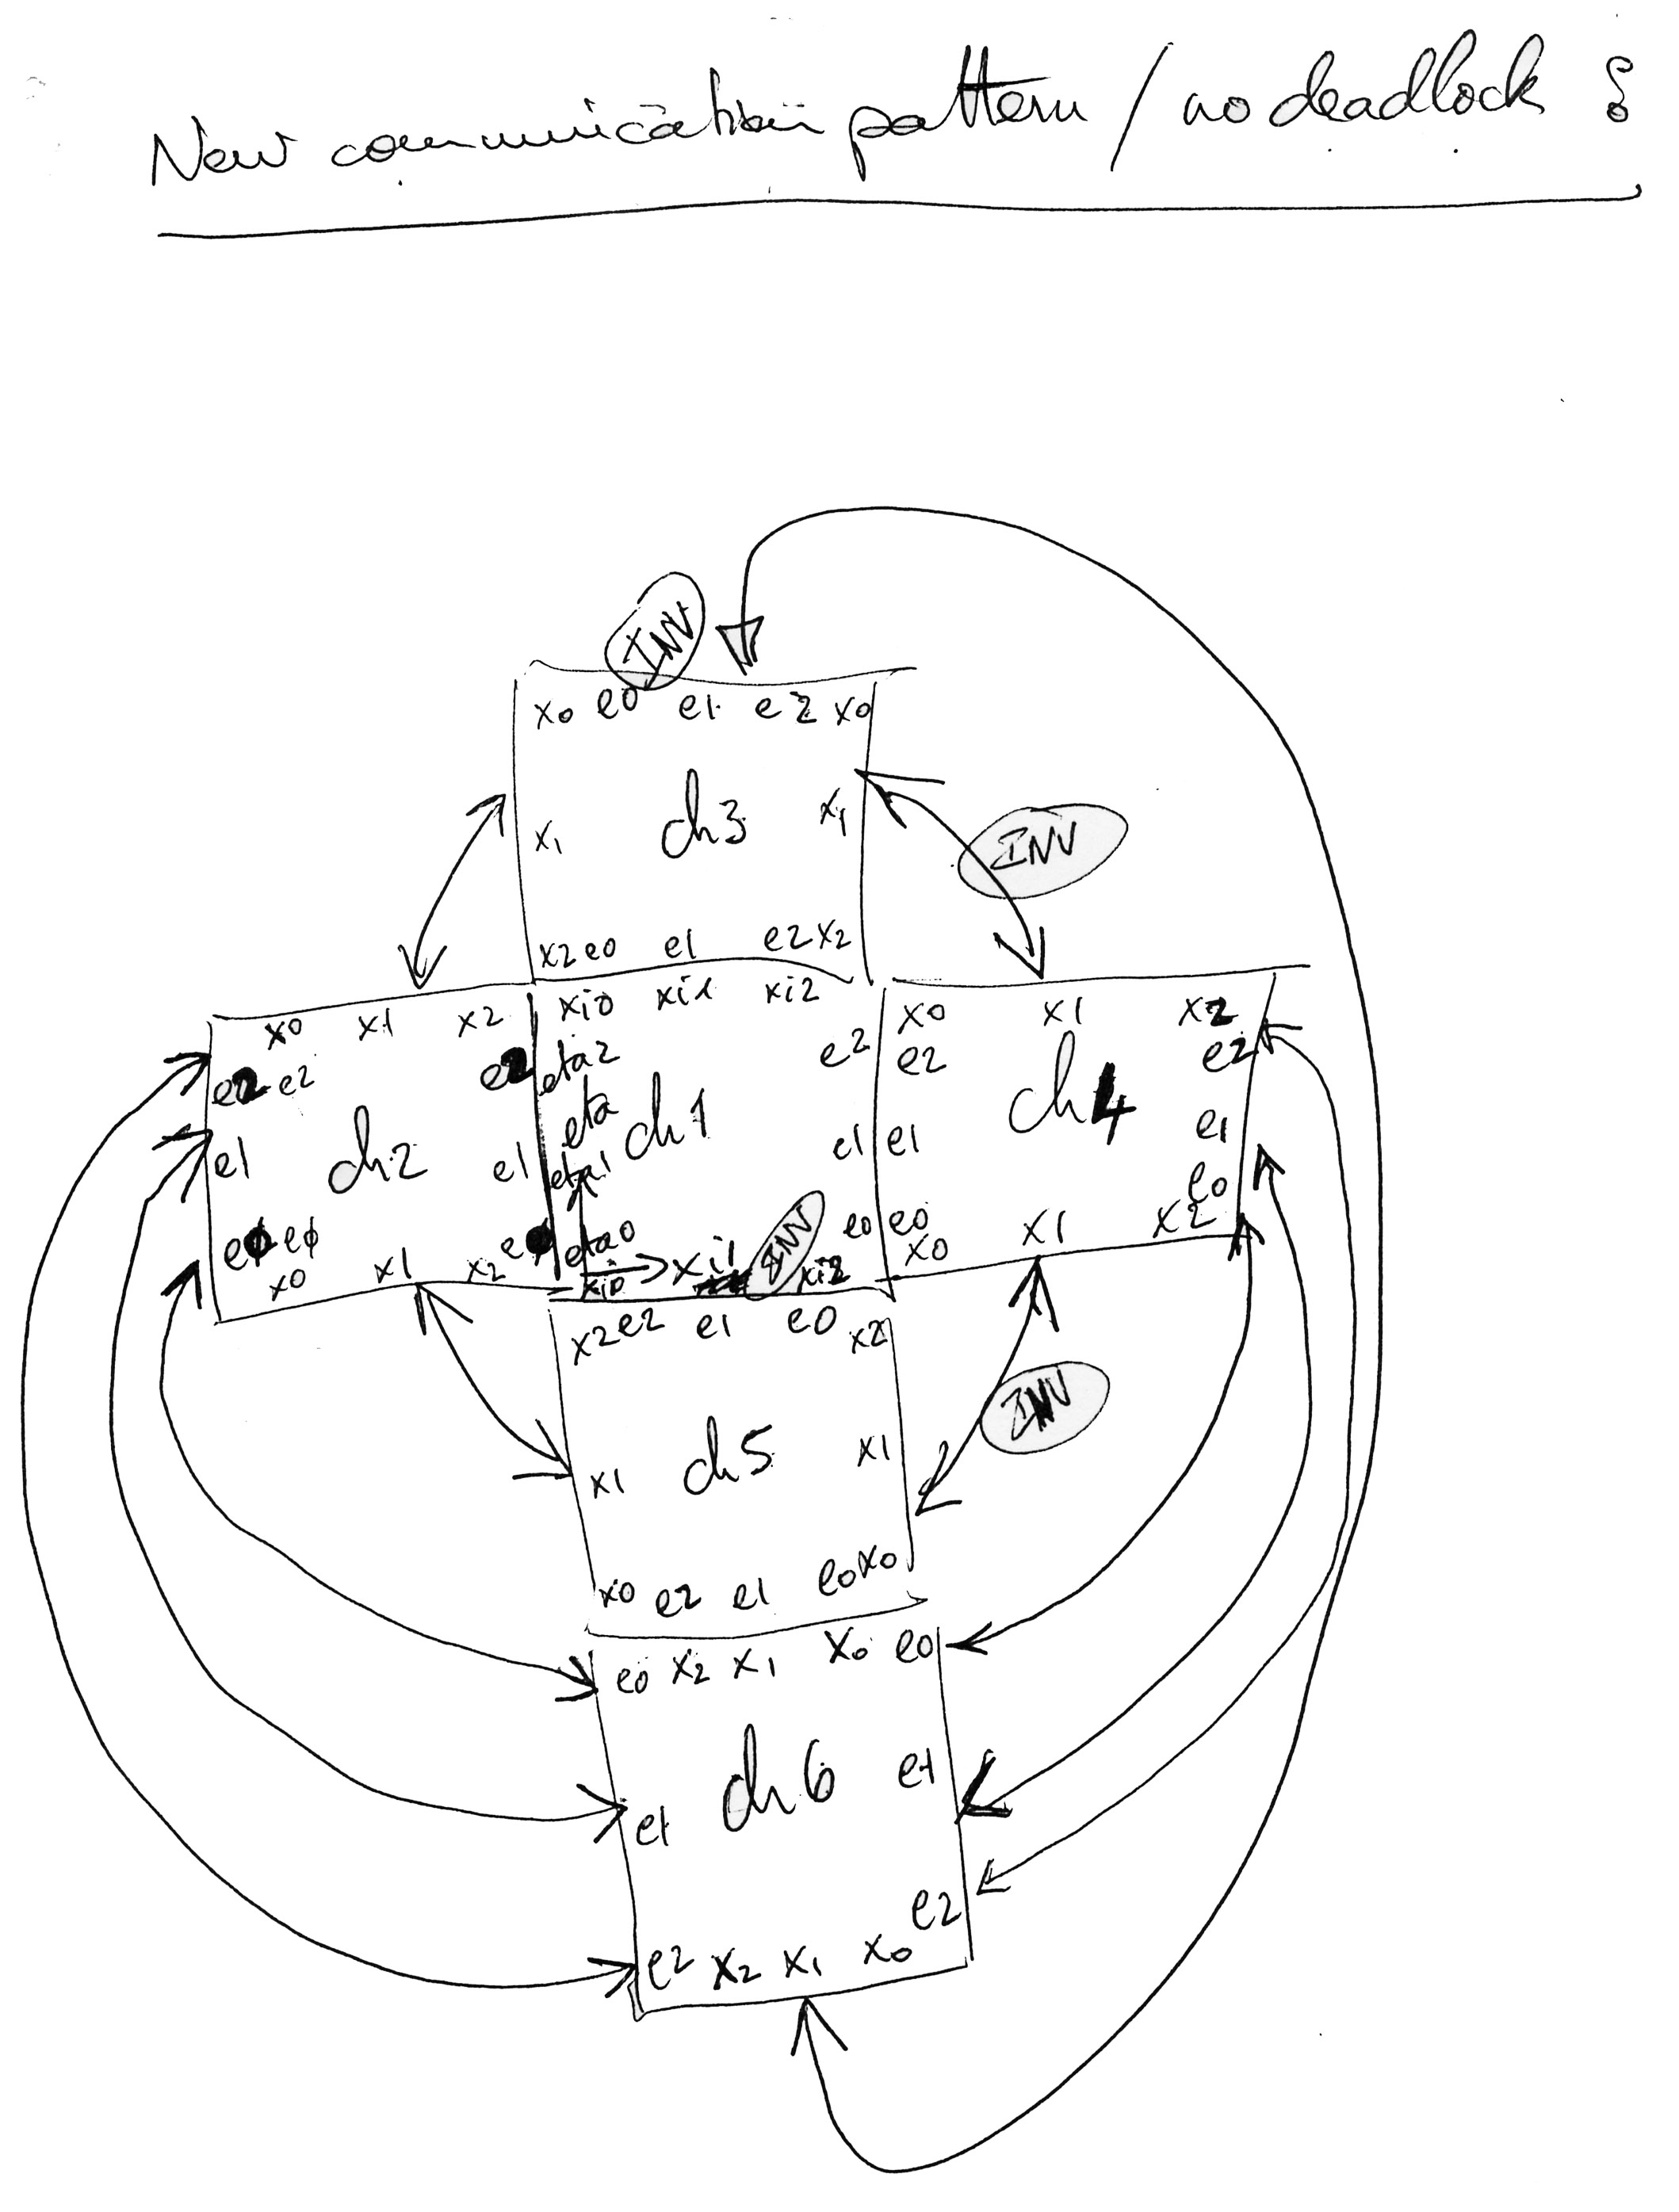 New communication pattern / no deadlock
INV
x0 e0 e1 e2 x0
x1 ch3 x1
INV
x2 e0 e1 e2 x2
x0 x1 x2
e2 e2 e2
e1 ch2 e1
eϕ eϕ eϕ
x0 x1 x2
xi0 xi1 xi2
eta2 e2
eta ch1
eta1 e1
eta0 e0
xi0 xi1 INV xi2
x0 x1 x2
e2 e2
ch4
e1 e1
e0 e0
x0 x1 x2
x2 e2 e1 e0 x2
INV
x1 ch5 x1
x0 e2 e1 e0 x0
e0 x2 x1 x0 e0
e1 ch6 e1
e2
e2 x2 x1 x0